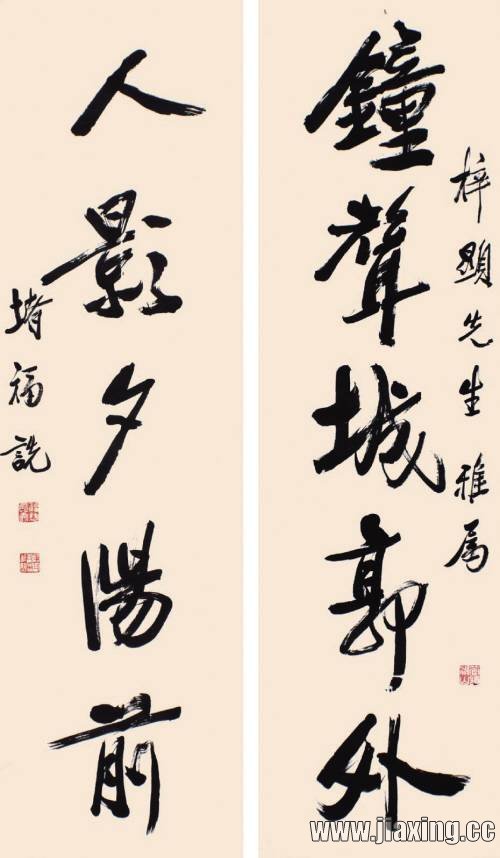 梓顕先生 雅属
鐘聲城郭外
人影夕陽前
堵福詵
www.jiaxing.cc